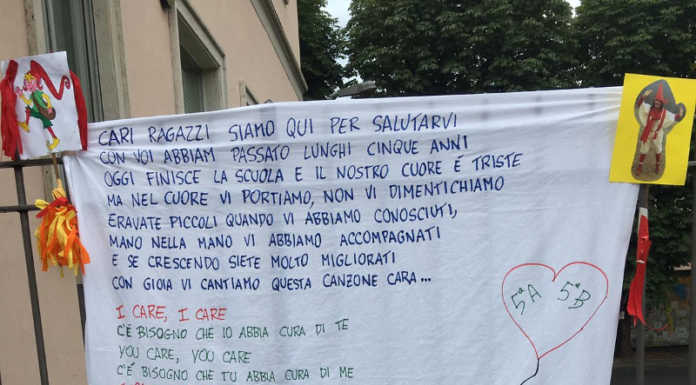 CARI RAGAZZI SIAMO QUI PER SALUTARVI
CON VOI ABBIAM PASSATO LUNGHI CINQUE ANNI
OGGI FINISCE LA SCUOLA E IL NOSTRO CUORE É TRISTE
MA NEL CUORE VI PORTIAMO, NON VI DIMENTICHIAMO
ERAVATE PICCOLI QUANDO VI ABBIAMO CONOSCIUTI,
MANO NELLA MANO VI ABBIAMO ACCOMPAGNATI
E SE CRESCENDO SIETE MOLTO MIGLIORATI
CON GIOIA VI CANTIAMO QUESTA CANZONE CARA...
I CARE, I CARE
C'É BISOGNO CHE IO ABBIA CURA DI TE
YOU CARE, YOU CARE
C'É BISOGNO CHE TU ABBIA CURA DI ME
5ªA 5ªB